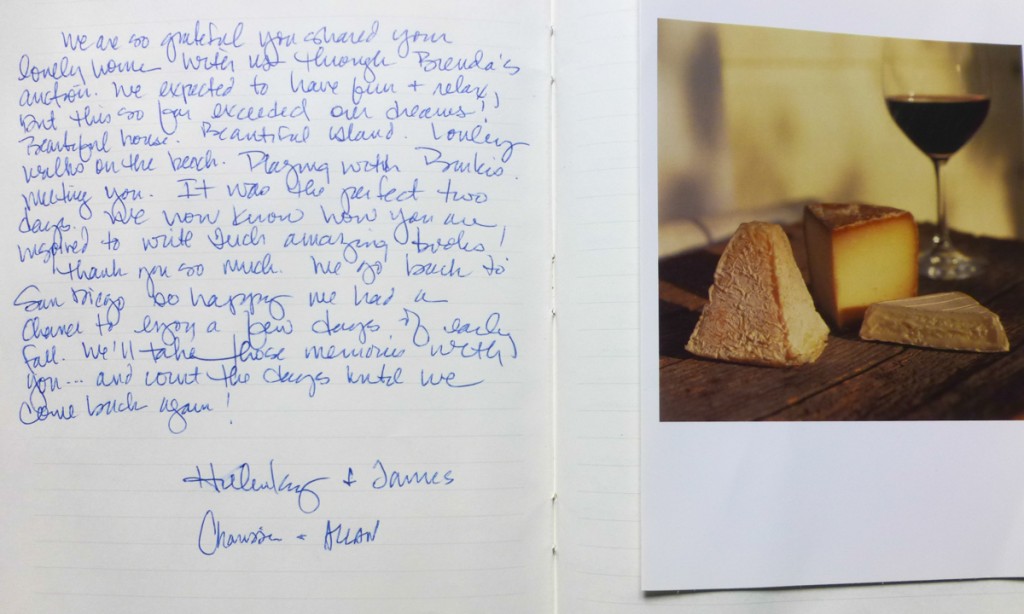 We are so grateful you shared your
lovely home with us through Brenda's
auction. We expected to have fun + relax,
but this so far exceeded our dreams!
Beautiful house. Beautiful island. Lovely
walks on the beach. Playing with
meeting you. It was the perfect two
days. We now know how you are
inspired to write such amazing books!
Thank you so much. We go back to
San Diego so happy we had a
chance to enjoy a few days of early
fall. We'll take those memories with
you... and count the days until we
come back again!
& James
+ ALLAN